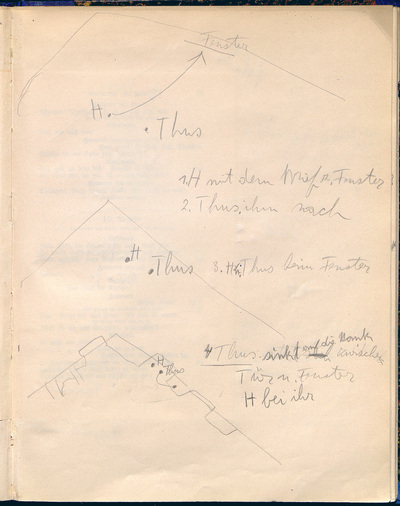 Fenster
H.
Thus
1. H mit dem Brief z. Fenster
2. Thus. ihm nach
H
Thus
3. H. Thus beim Fenster
H
Thus
4 Thus. sinkt auf die Bank zwischen
Tür u. Fenster
H bei ihr